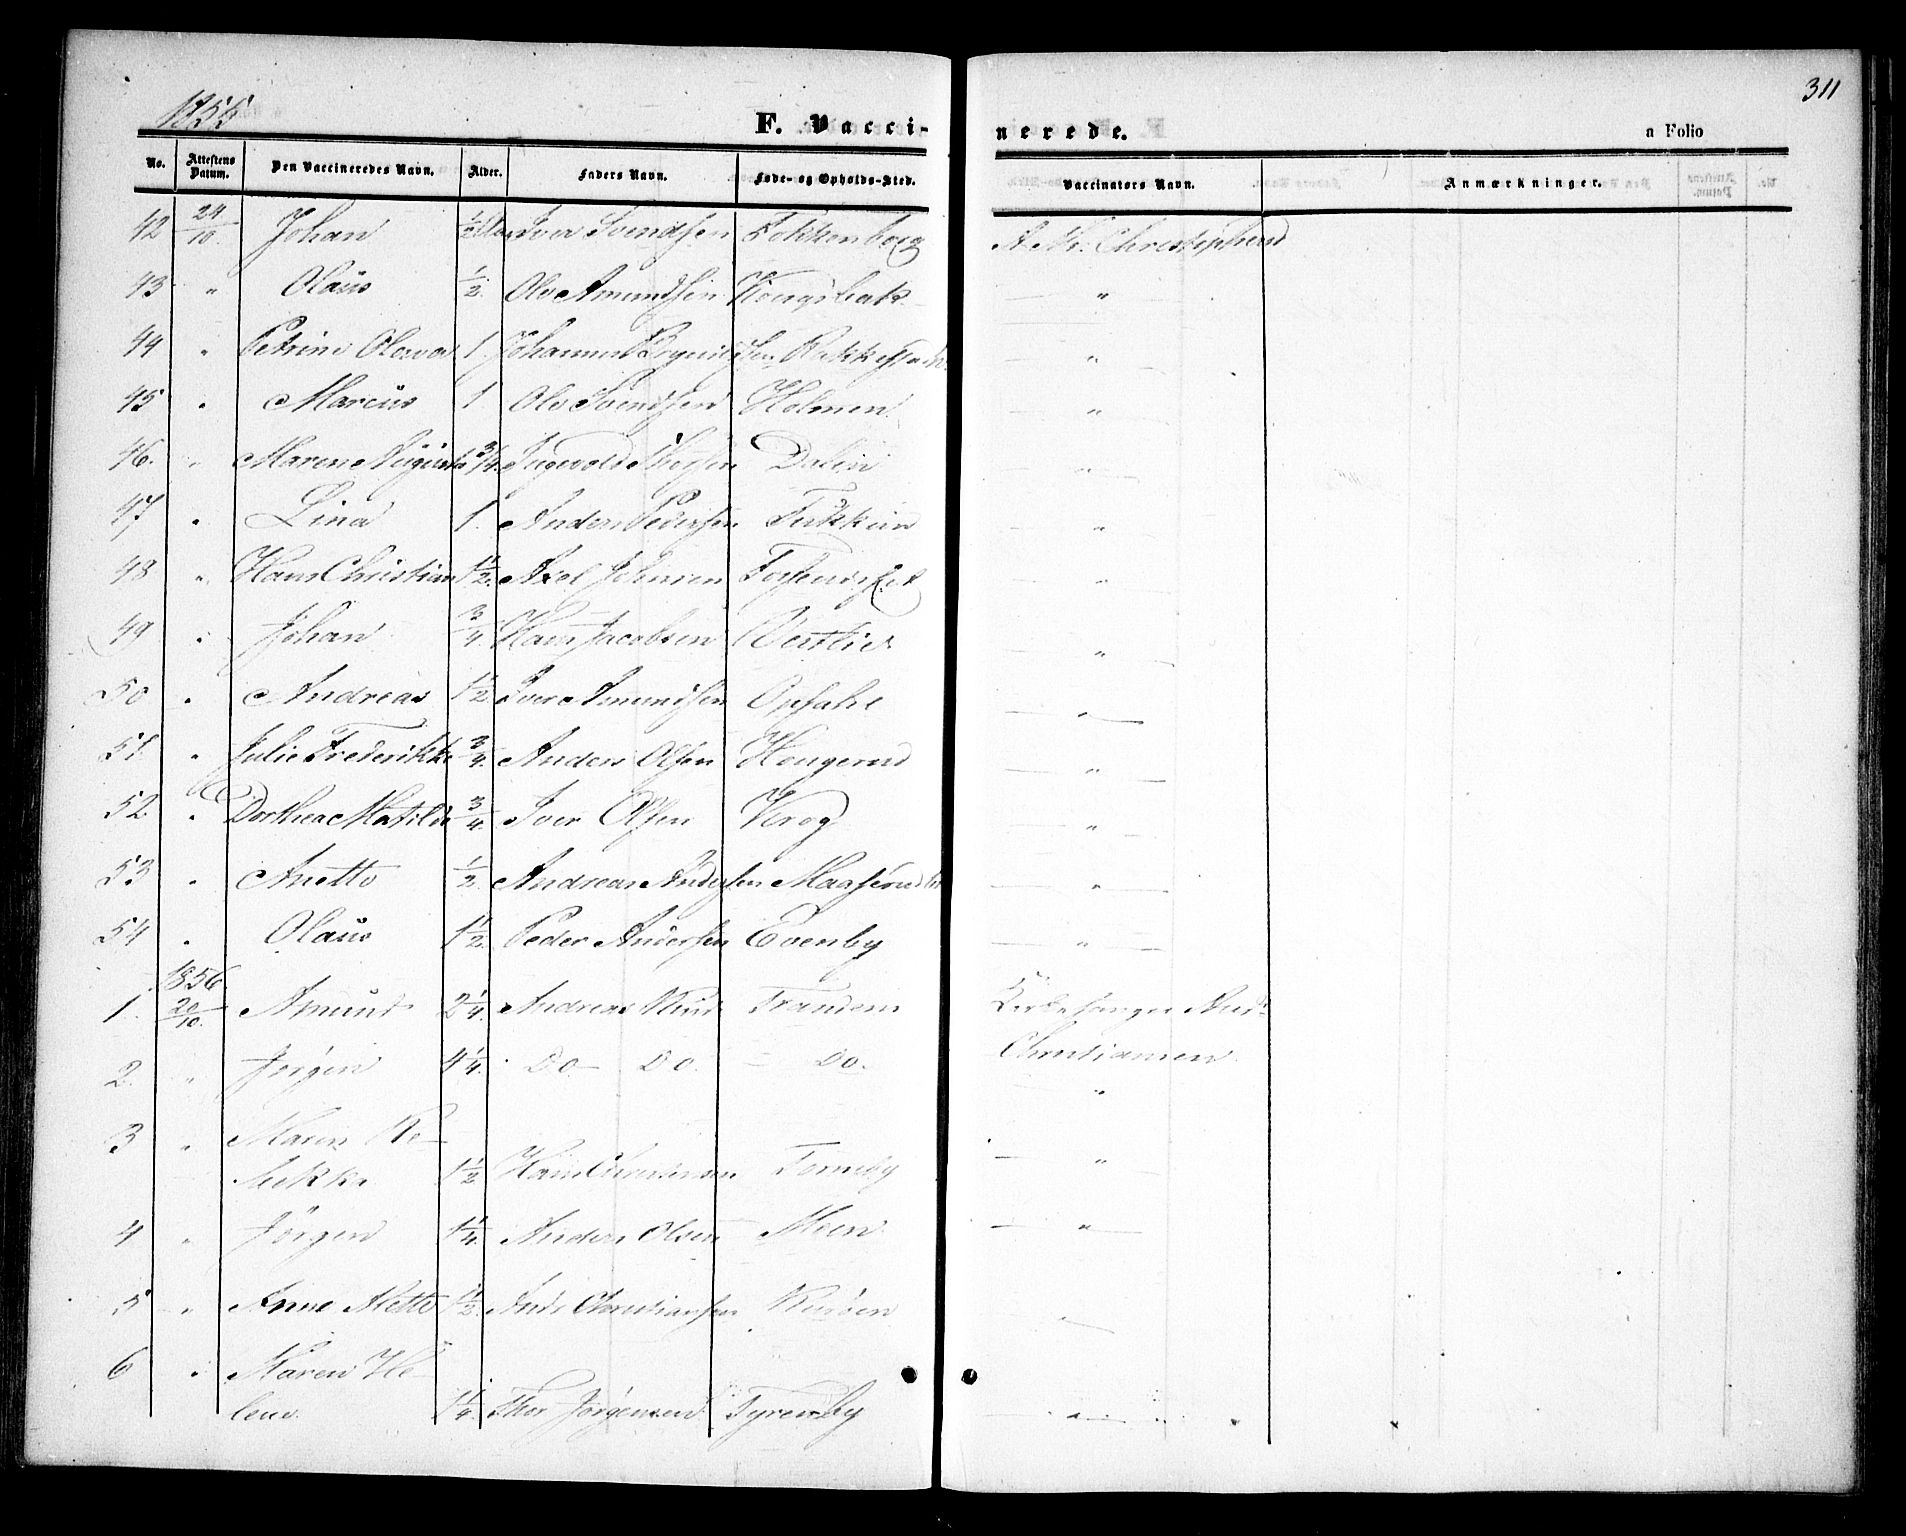 311
1855
F. Vaccinerede.
a Folio
No. Attestens Datum. Den Vaccineredes Navn. Alder. Faders Navn. Føde- og Opholds-Sted. Vaccinators Navn. Anmærkninger.
42 24/10. Johan 1/2 Iver Svendsen Fokkenborg A. Christophersen
43 " Olaüs 1/2. Ole Amundsen Kongsbak "
44 " Petrine 1. Johannes "
45 " Marcüs 1 Ole Svendsen Holmen "
46. " Maren Aügusta 3/4. Ingevold Dalen "
47, " Lina 1. Anders Pedersen "
48 " Hans Christian 1 1/2. Axel Johnsen "
49 " Johan 3/4. Hans Jacobsen "
50 " Andreas 1 1/2 Iver Amundsen Opsahl "
51. " Julie Frederikke 3/4. Anders Olsen Hougerud "
52 " Dorthea Matilde 3/4 Iver Olsen Krog "
53 " Anette 1/2. Andreas Andersen "
54 " Olaüs 1 1/2. Peder Andersen Evenby "
1856
1. 20/10. Amünd 2 1/4. Andreas Trandem Kirkesanger And.
Christiansen
2. " Jørgen 4 1/4. Do Do. Do. "
3 " Maren Re-
bekka 1 1/2 Hans "
4 " Jørgen 1 1/4. Anders Olsen Moen "
5 " Anne Mette 1 1/2. And. Christiansen
6 " Maren He-
lene 1 1/4. Thor Jørgensen Tyrenby "